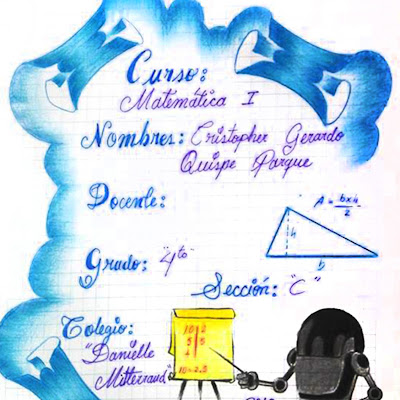 Curso:
Matemática I
Nombres: Cristopher Gerardo
Quispe Parque
Docente:
A = bxh/2
h
b
Grado: "4to"
Sección: "C"
Colegio:
"Danielle
Mitterraud"
10 2
5 5
1
10=2.5